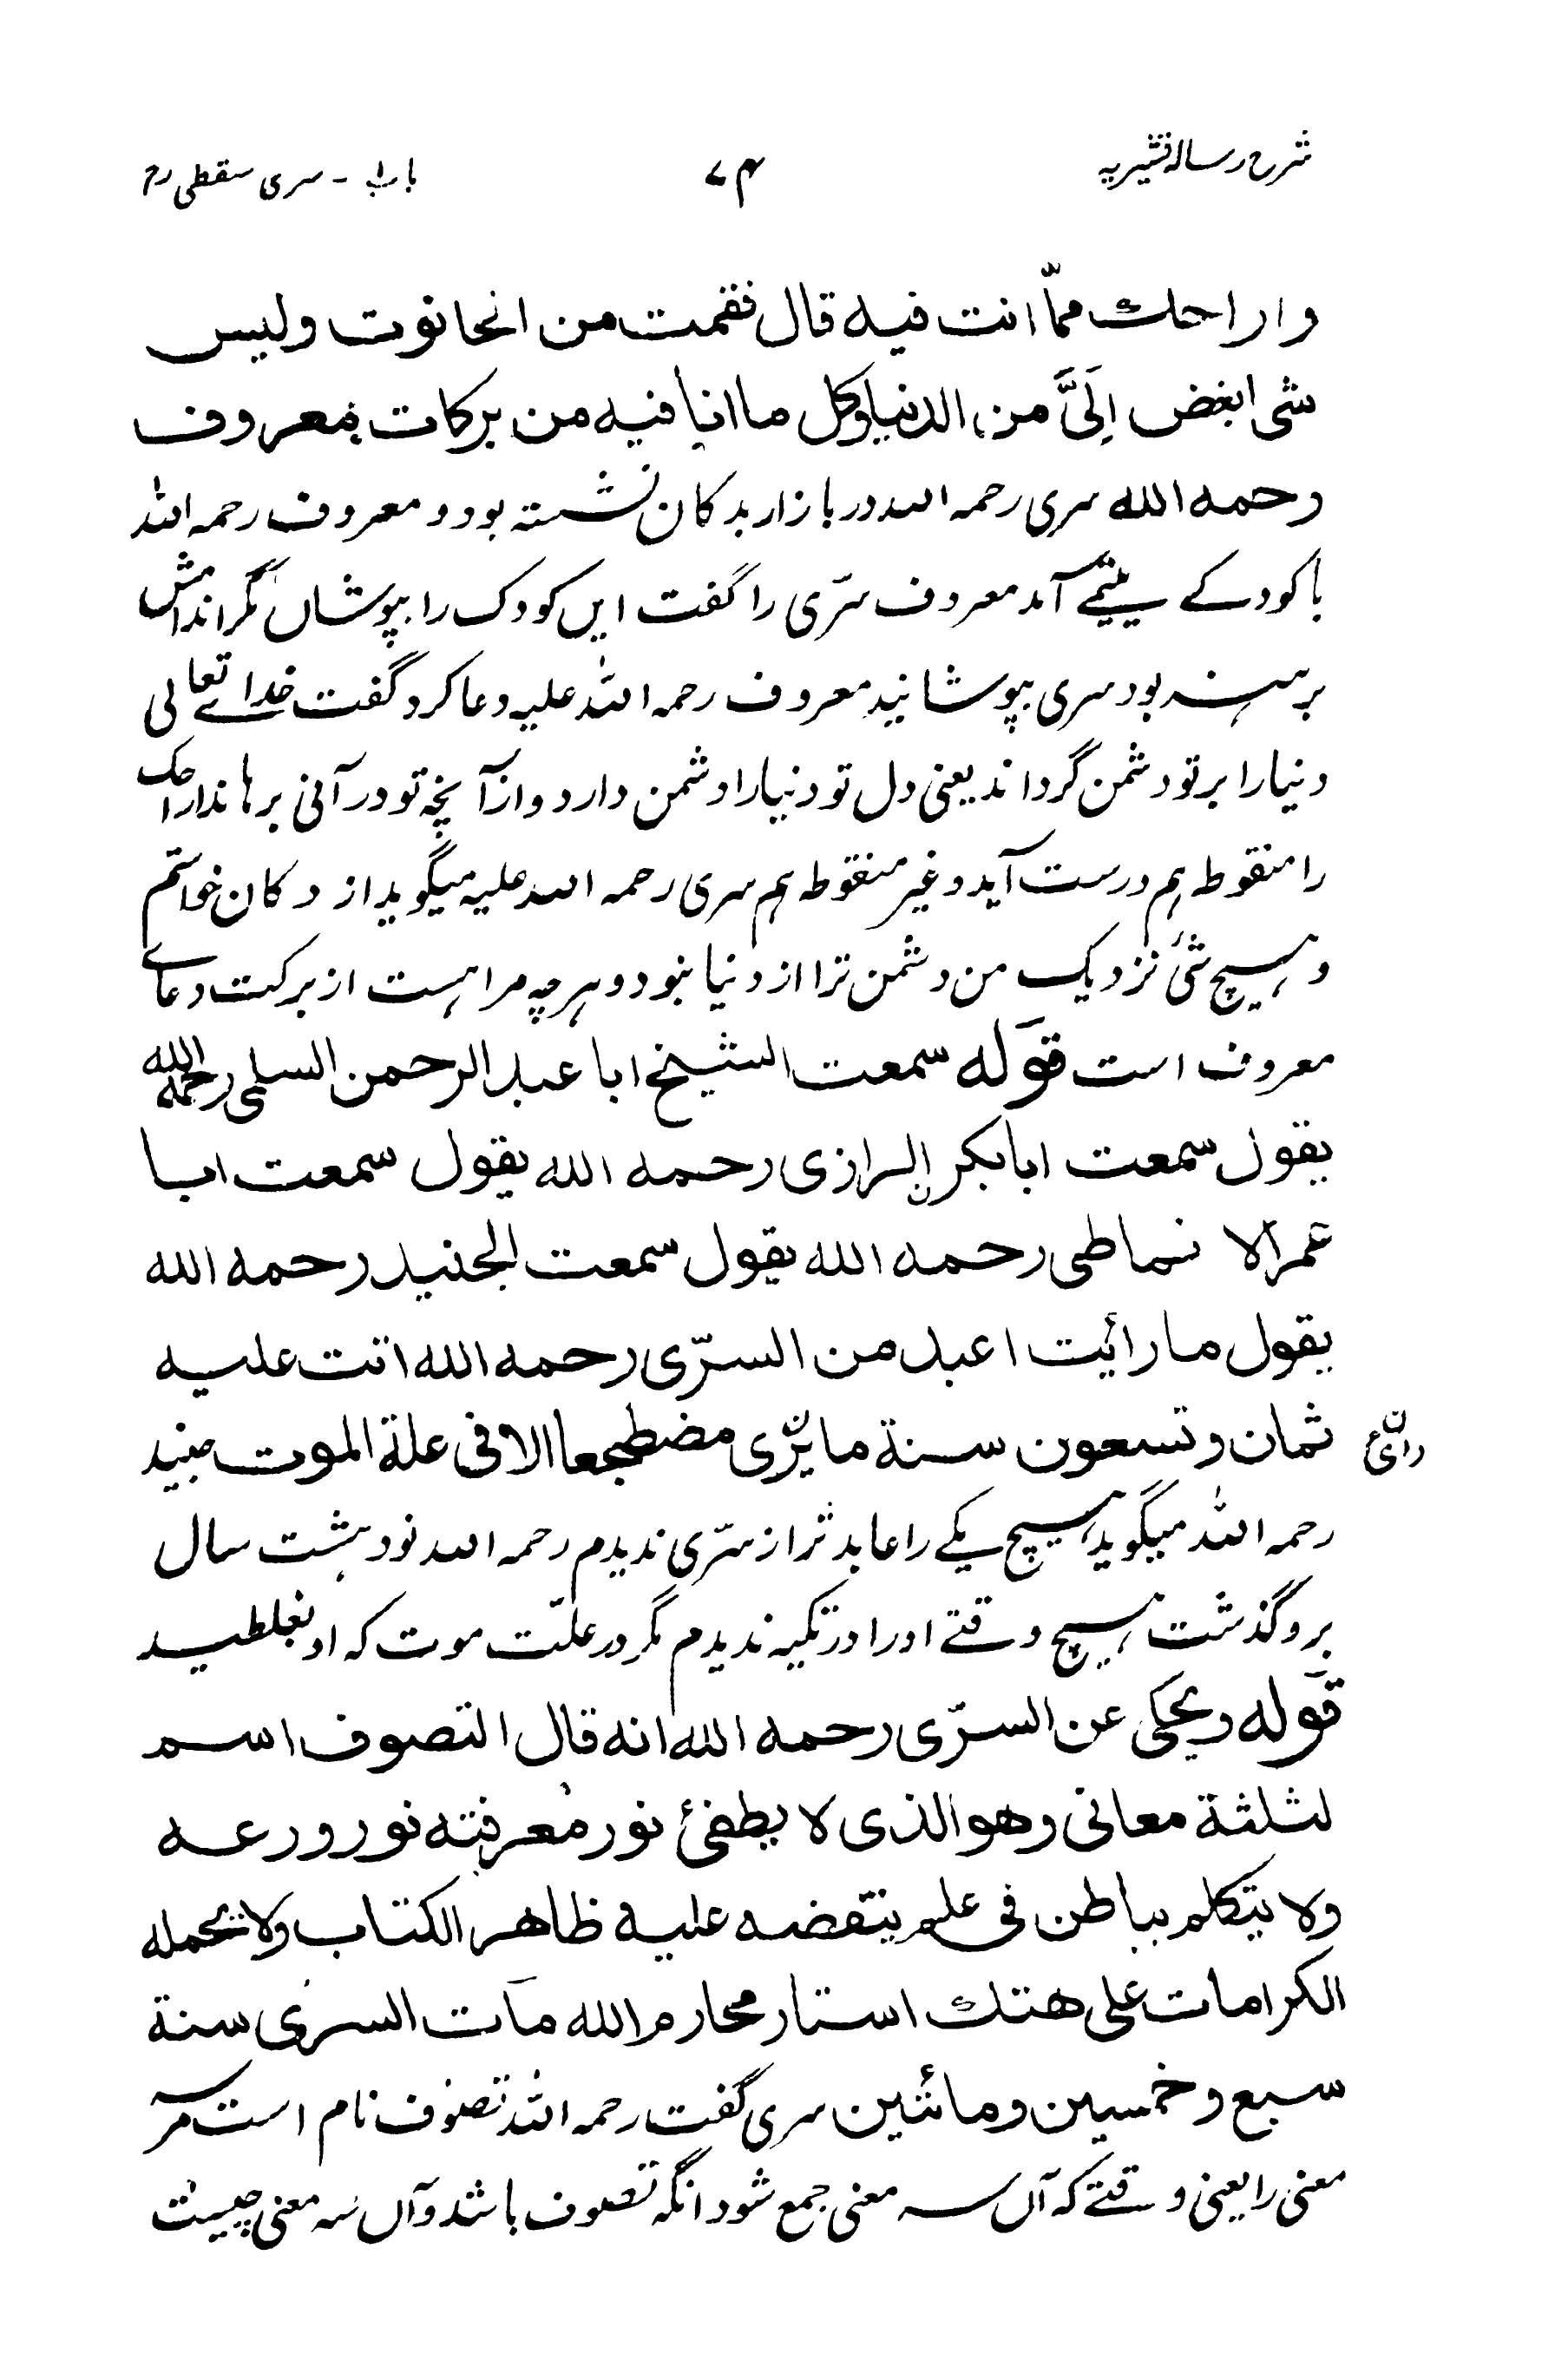 شرح رسالہ قشیریہ ۷۴ باب - سری سقطی رح
واراحك ممّا انت فيه قال فقمت من الحانوت وليس
شی ابغض اِلَیَّ من الدنيا وكل ما انا فيه من بركات معروف
رحمه الله سری رحمہ اللہ در بازار بدکان نشستہ بود و معروف رحمہ اللہ
با کودکے یتیمے آمد معروف سرّی را گفت ایں کودک را بپوشاں مگر اندامش
برہنہ بود سری بپوشانید معروف رحمہ اللہ علیہ دعا کرد و گفت خداے تعالی
دنیا را بر تو دشمن گرداند یعنی دل تو دنیا را دشمن دارد و از آنچہ تو در آنی برہاند اراحک
را منقوطہ ہم درست آید و غیر منقوطہ ہم سری رحمہ اللہ علیہ میگوید از دکان خواستم
و ہیچ شئ نزدیک من دشمن تر از دنیا نبود و ہرچہ مرا ہست از برکت دعاے
معروف است قوله سمعت الشيخ ابا عبد الرحمن السلمی رحمه الله
يقول سمعت ابا بكر الرازی رحمه الله يقول سمعت ابا
عمر الا نماطی رحمه الله يقول سمعت الجنيد رحمه الله
يقول ما رائيت اعبد من السرّی رحمه الله اتت عليه
ثمان وتسعون سنة ما يرٰی مضطجعا الا فی علة الموت جنید
رحمہ اللہ میگوید ہیچ یکے را عابد تر از سرّی ندیدم رحمہ اللہ نود ہشت سال
برو گذشت ہیچ وقتے او را در تکیہ ندیدم مگر در علّت موت کہ او بغلطید
قوله ويحكی عن السرّی رحمه الله انه قال التصوف اسم
لثلثة معانی وهو الذی لا يطفئ نور معرفته نور ورعه
ولا يتكلم بباطن فی علم ينقضه عليه ظاهر الكتاب ولا تحمله
الكرامات علی هتك استار محارم الله مات السری سنة
سبع وخمسين ومائتين سری گفت رحمہ اللہ تصوف نام است مر سہ
معنی را یعنی وقتے کہ آں سہ معنی جمع شود انگہ تصوف باشد و آں سہ معنی چیست